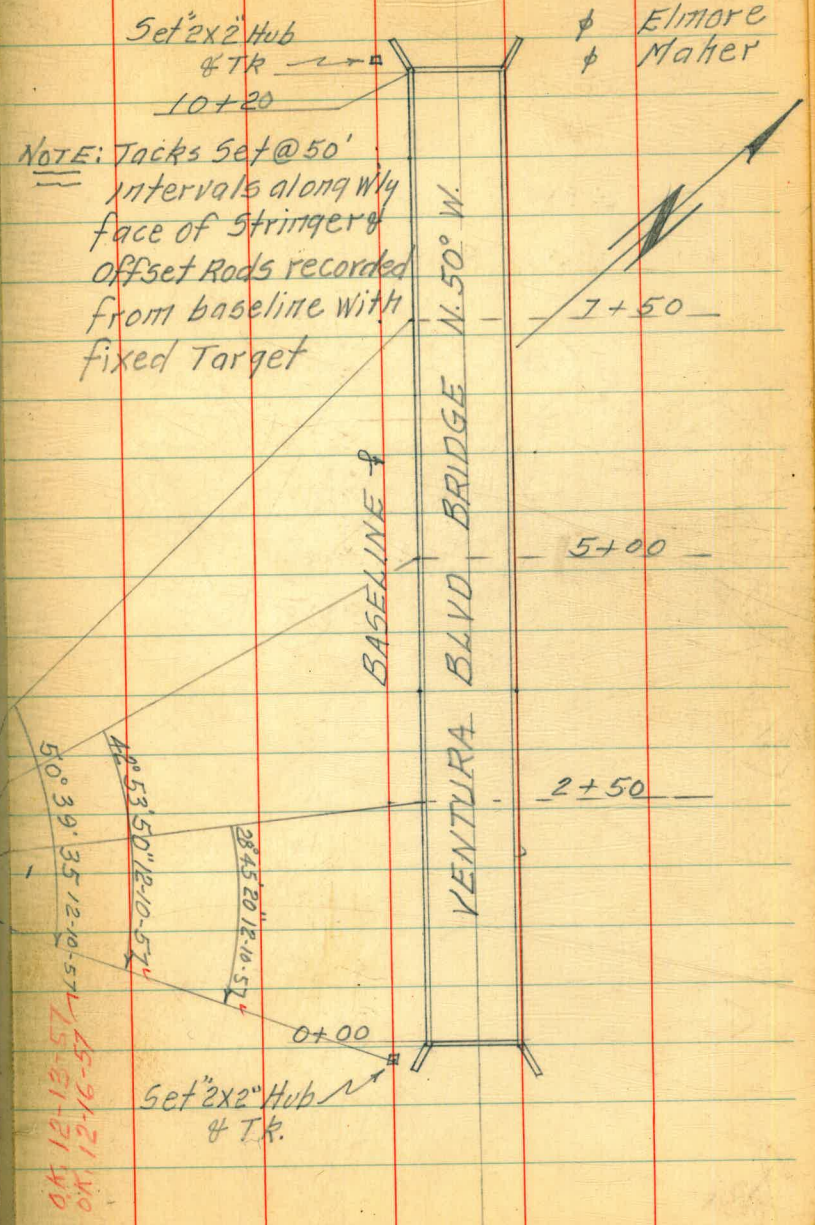 Set "2x2" Hub
& Tk
10+20
ϕ Elmore
ϕ Maher
NOTE: Tacks Set @ 50'
Intervals along W'ly
face of Stringer &
Offset Rods recorded
from baseline with
fixed Target
N
7+50
5+00
2+50
0+00
BASELINE
VENTURA BLVD BRIDGE N.50° W.
50° 39' 35 12-10-57
42° 53' 50" 12-10-57
28° 45' 20" 12-10-57
Set "2x2" Hub
& Tk.
OK. 12-13-57
OK. 12-16-57